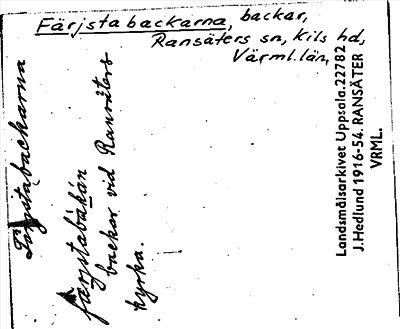 Färjstabackarna, backar,
Ransäters sn, Kils hd,
Värml. län,
Färjstabackarna
färjstabåkån
backar vid Ransäters
kyrka.
Landsmålsarkivet Uppsala. 22782
J. Hedlund 1916-54. RANSÄTER
VRML.